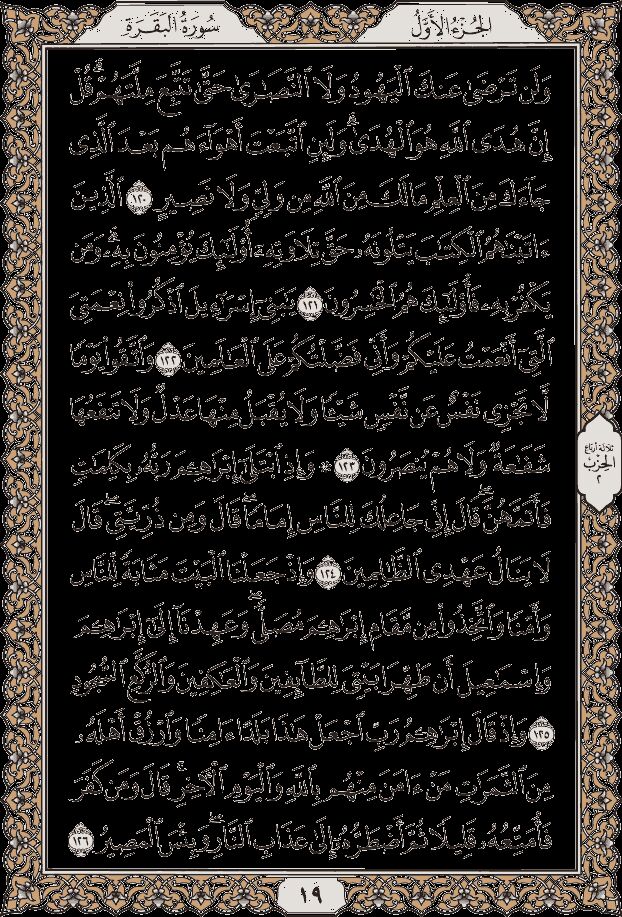 الجُزْءُ الأَوَّلُ
سُورَةُ البَقَرَةِ
وَلَن تَرْضَىٰ عَنكَ ٱلْيَهُودُ وَلَا ٱلنَّصَٰرَىٰ حَتَّىٰ تَتَّبِعَ مِلَّتَهُمْ ۗ قُلْ
إِنَّ هُدَى ٱللَّهِ هُوَ ٱلْهُدَىٰ ۗ وَلَئِنِ ٱتَّبَعْتَ أَهْوَآءَهُم بَعْدَ ٱلَّذِى
جَآءَكَ مِنَ ٱلْعِلْمِ ۙ مَا لَكَ مِنَ ٱللَّهِ مِن وَلِىٍّ وَلَا نَصِيرٍ ١٢٠ ٱلَّذِينَ
ءَاتَيْنَٰهُمُ ٱلْكِتَٰبَ يَتْلُونَهُۥ حَقَّ تِلَاوَتِهِۦٓ أُو۟لَٰٓئِكَ يُؤْمِنُونَ بِهِۦ ۗ وَمَن
يَكْفُرْ بِهِۦ فَأُو۟لَٰٓئِكَ هُمُ ٱلْخَٰسِرُونَ ١٢١ يَٰبَنِىٓ إِسْرَٰٓءِيلَ ٱذْكُرُوا۟ نِعْمَتِىَ
ٱلَّتِىٓ أَنْعَمْتُ عَلَيْكُمْ وَأَنِّى فَضَّلْتُكُمْ عَلَى ٱلْعَٰلَمِينَ ١٢٢ وَٱتَّقُوا۟ يَوْمًا
لَّا تَجْزِى نَفْسٌ عَن نَّفْسٍ شَيْـًٔا وَلَا يُقْبَلُ مِنْهَا عَدْلٌ وَلَا تَنفَعُهَا
شَفَٰعَةٌ وَلَا هُمْ يُنصَرُونَ ١٢٣ ۞ وَإِذِ ٱبْتَلَىٰٓ إِبْرَٰهِـۧمَ رَبُّهُۥ بِكَلِمَٰتٍ
فَأَتَمَّهُنَّ ۖ قَالَ إِنِّى جَاعِلُكَ لِلنَّاسِ إِمَامًا ۖ قَالَ وَمِن ذُرِّيَّتِى ۖ قَالَ
لَا يَنَالُ عَهْدِى ٱلظَّٰلِمِينَ ١٢٤ وَإِذْ جَعَلْنَا ٱلْبَيْتَ مَثَابَةً لِّلنَّاسِ
وَأَمْنًا وَٱتَّخِذُوا۟ مِن مَّقَامِ إِبْرَٰهِـۧمَ مُصَلًّى ۖ وَعَهِدْنَآ إِلَىٰٓ إِبْرَٰهِـۧمَ
وَإِسْمَٰعِيلَ أَن طَهِّرَا بَيْتِىَ لِلطَّآئِفِينَ وَٱلْعَٰكِفِينَ وَٱلرُّكَّعِ ٱلسُّجُودِ
١٢٥ وَإِذْ قَالَ إِبْرَٰهِـۧمُ رَبِّ ٱجْعَلْ هَٰذَا بَلَدًا ءَامِنًا وَٱرْزُقْ أَهْلَهُۥ
مِنَ ٱلثَّمَرَٰتِ مَنْ ءَامَنَ مِنْهُم بِٱللَّهِ وَٱلْيَوْمِ ٱلْـَٔاخِرِ ۖ قَالَ وَمَن كَفَرَ
فَأُمَتِّعُهُۥ قَلِيلًا ثُمَّ أَضْطَرُّهُۥٓ إِلَىٰ عَذَابِ ٱلنَّارِ ۖ وَبِئْسَ ٱلْمَصِيرُ ١٢٦
ثلاثة أرباع
الحزب
٢
١٩